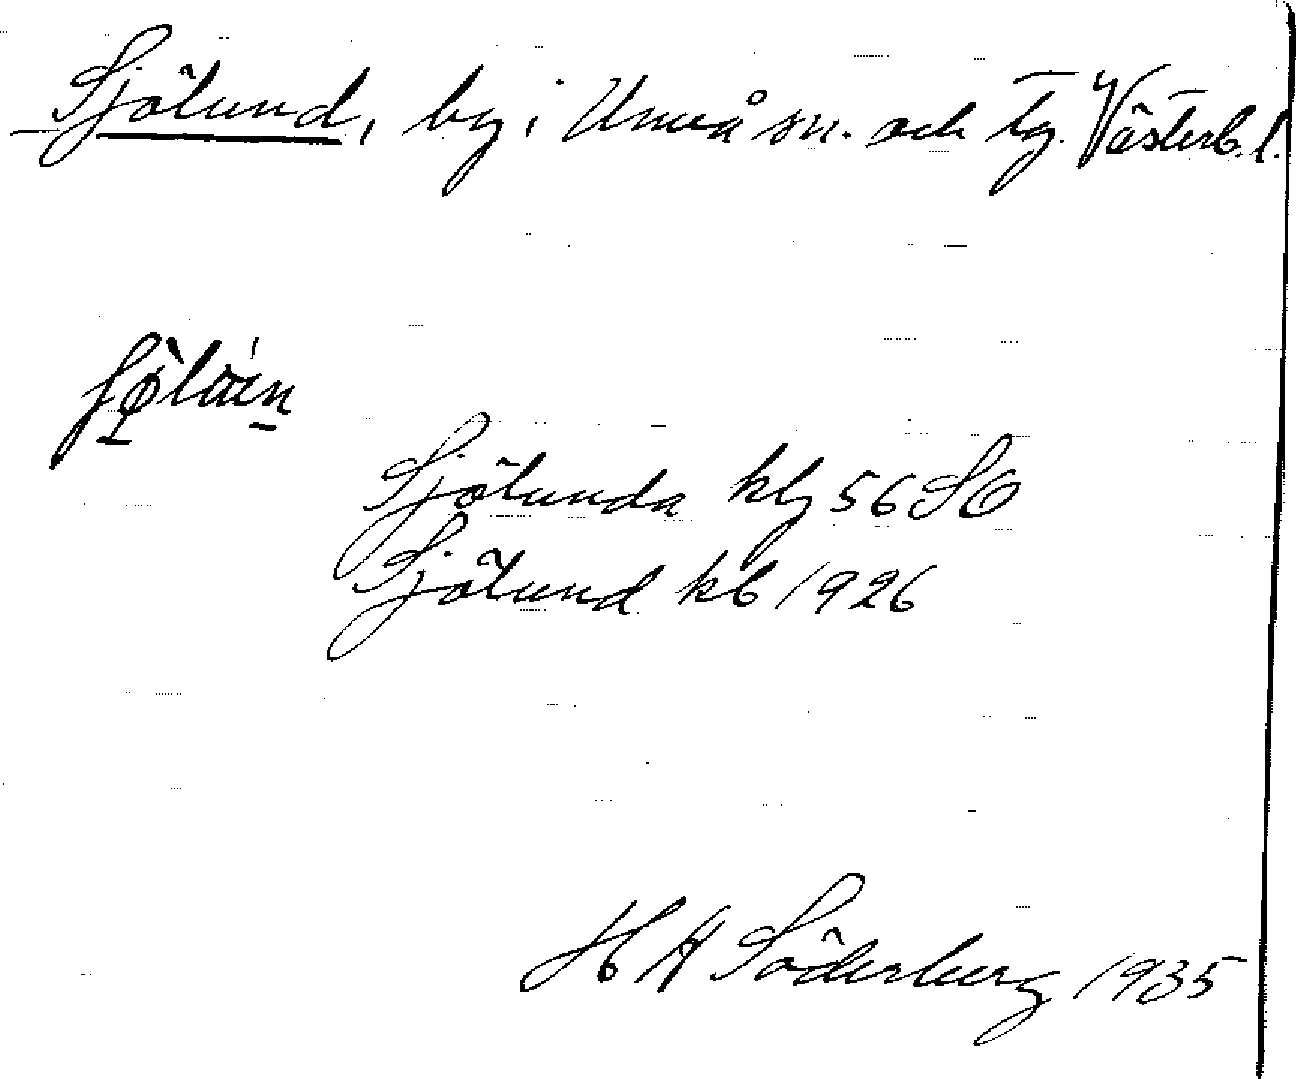 Sjölund, by i Umeå sn. och tg. Västerb. l.
Sjölunda klg 56 SO
Sjölund kb 1926
H H Söderberg 1935